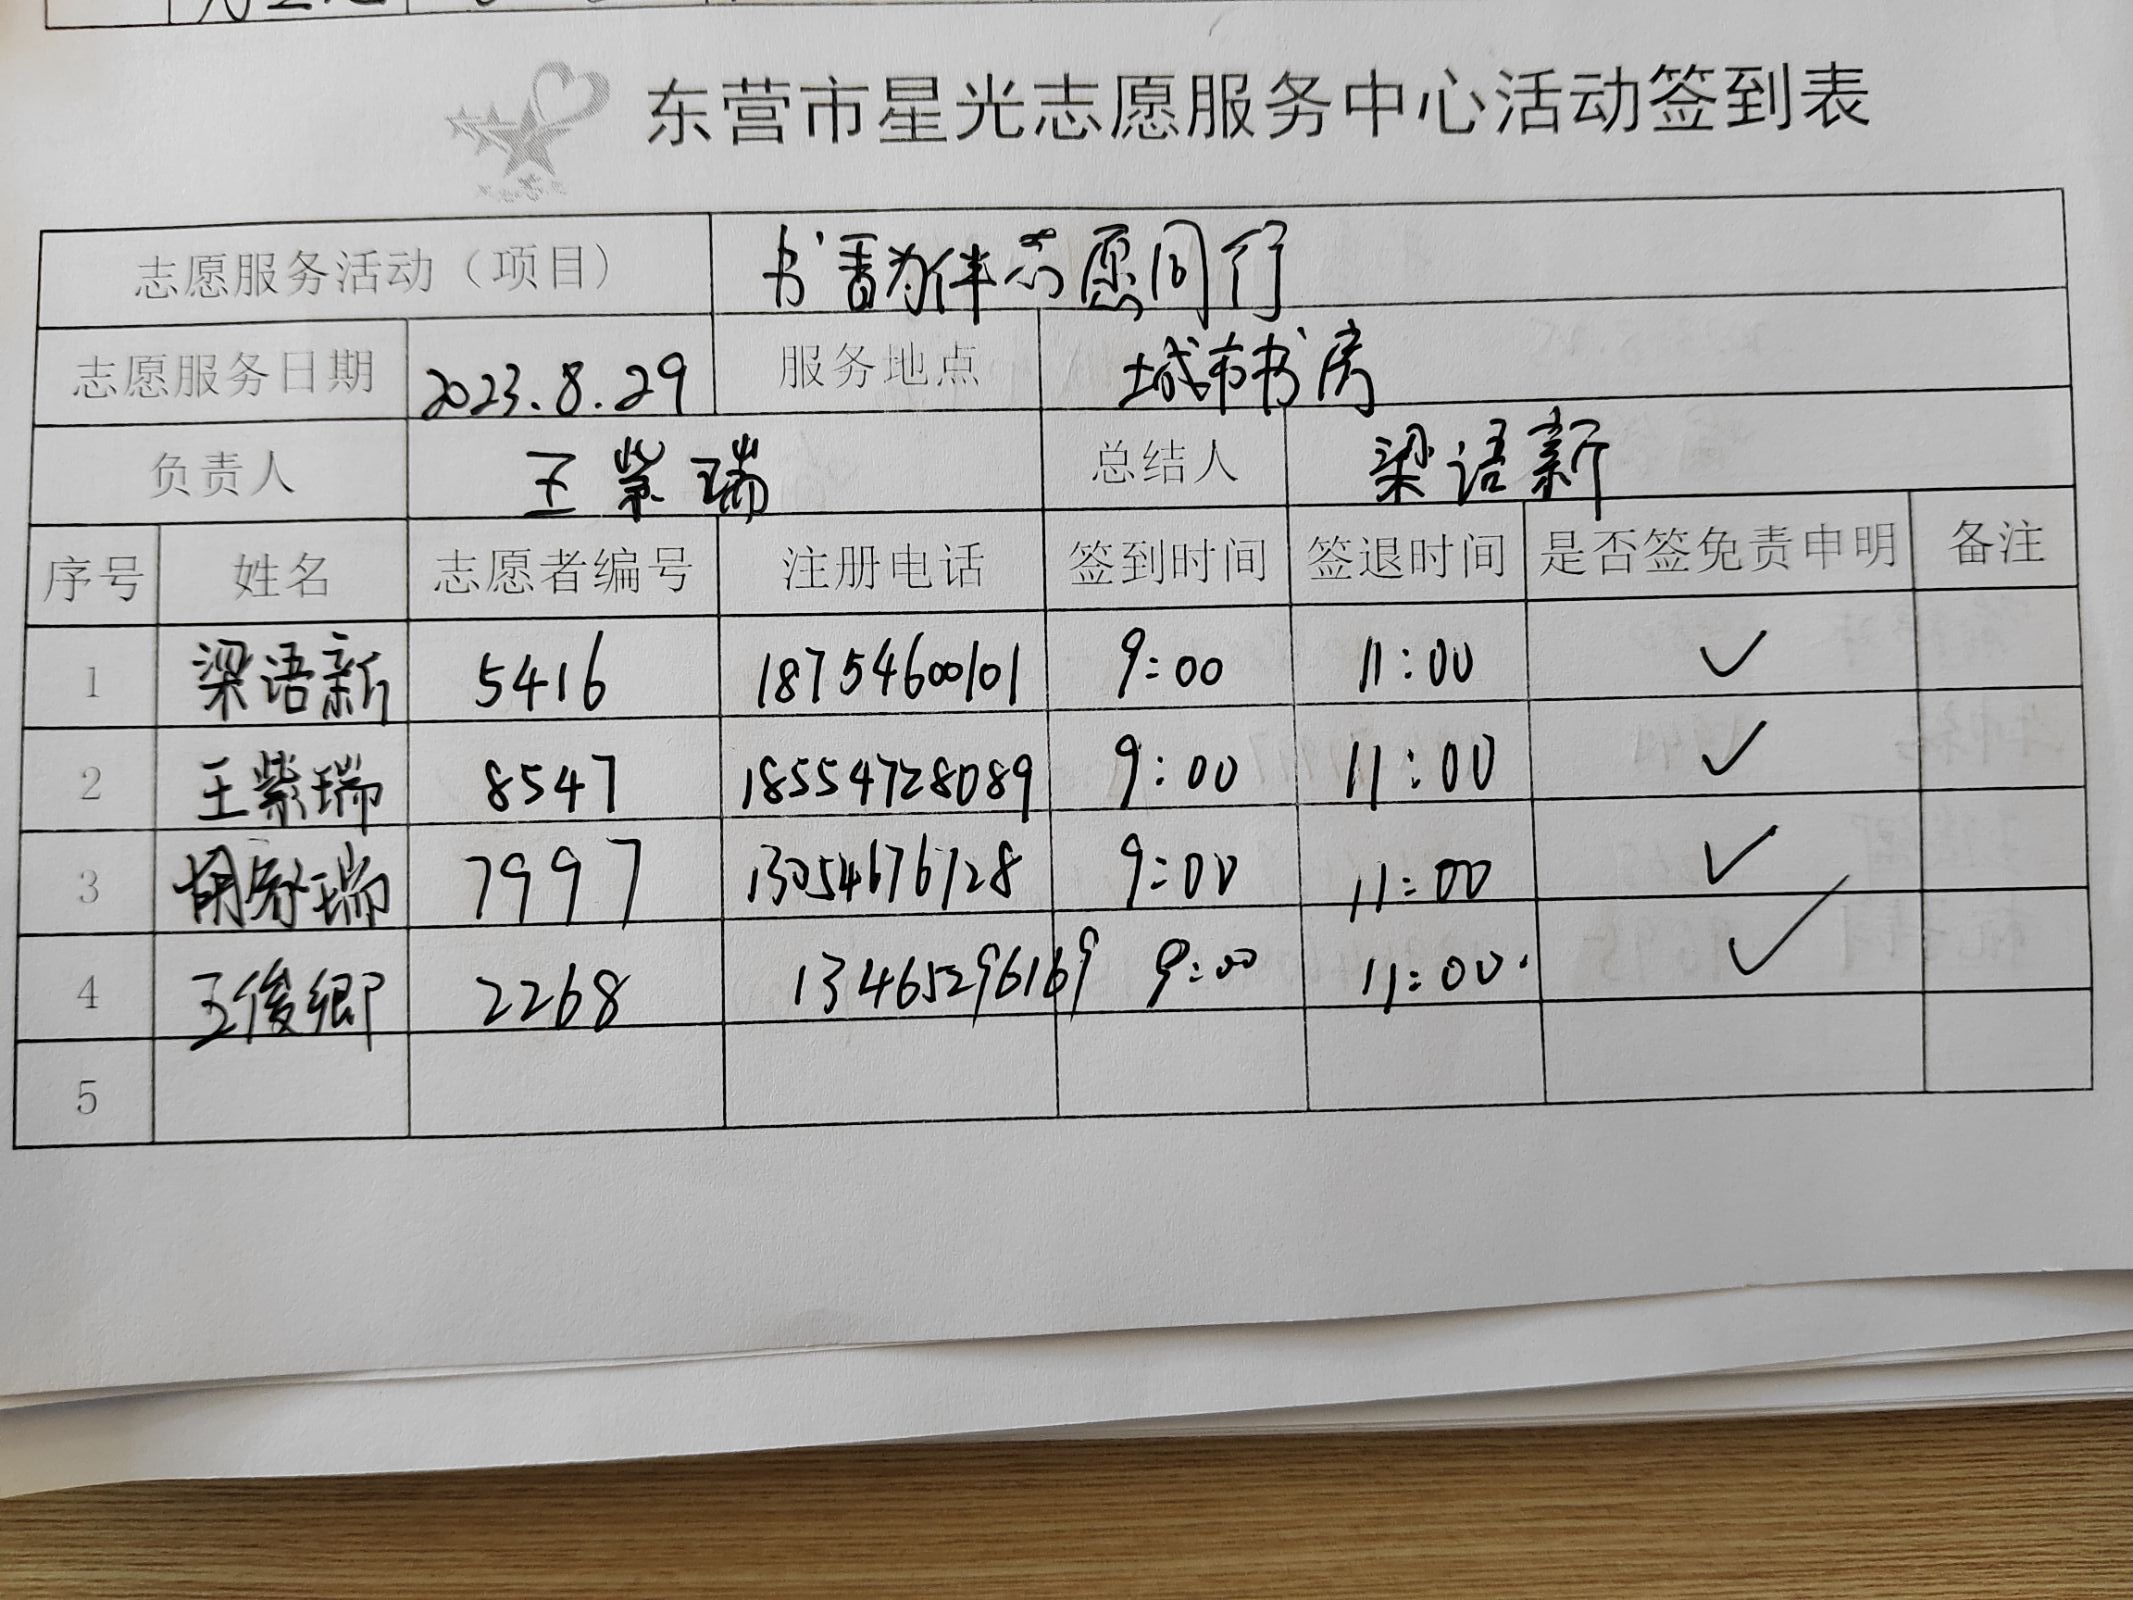 东营市星光志愿服务中心活动签到表
志愿服务活动（项目） 书香为伴志愿同行
志愿服务日期 2023.8.29 服务地点 城市书房
负责人 王紫瑞 总结人 梁语新
序号 姓名 志愿者编号 注册电话 签到时间 签退时间 是否签免责申明 备注
1 梁语新 5416 18754600101 9:00 11:00 ✓
2 王紫瑞 8547 18554728089 9:00 11:00 ✓
3 胡舒瑞 7997 13054676128 9:00 11:00 ✓
4 王俊卿 2268 13465296169 9:00 11:00 ✓
5